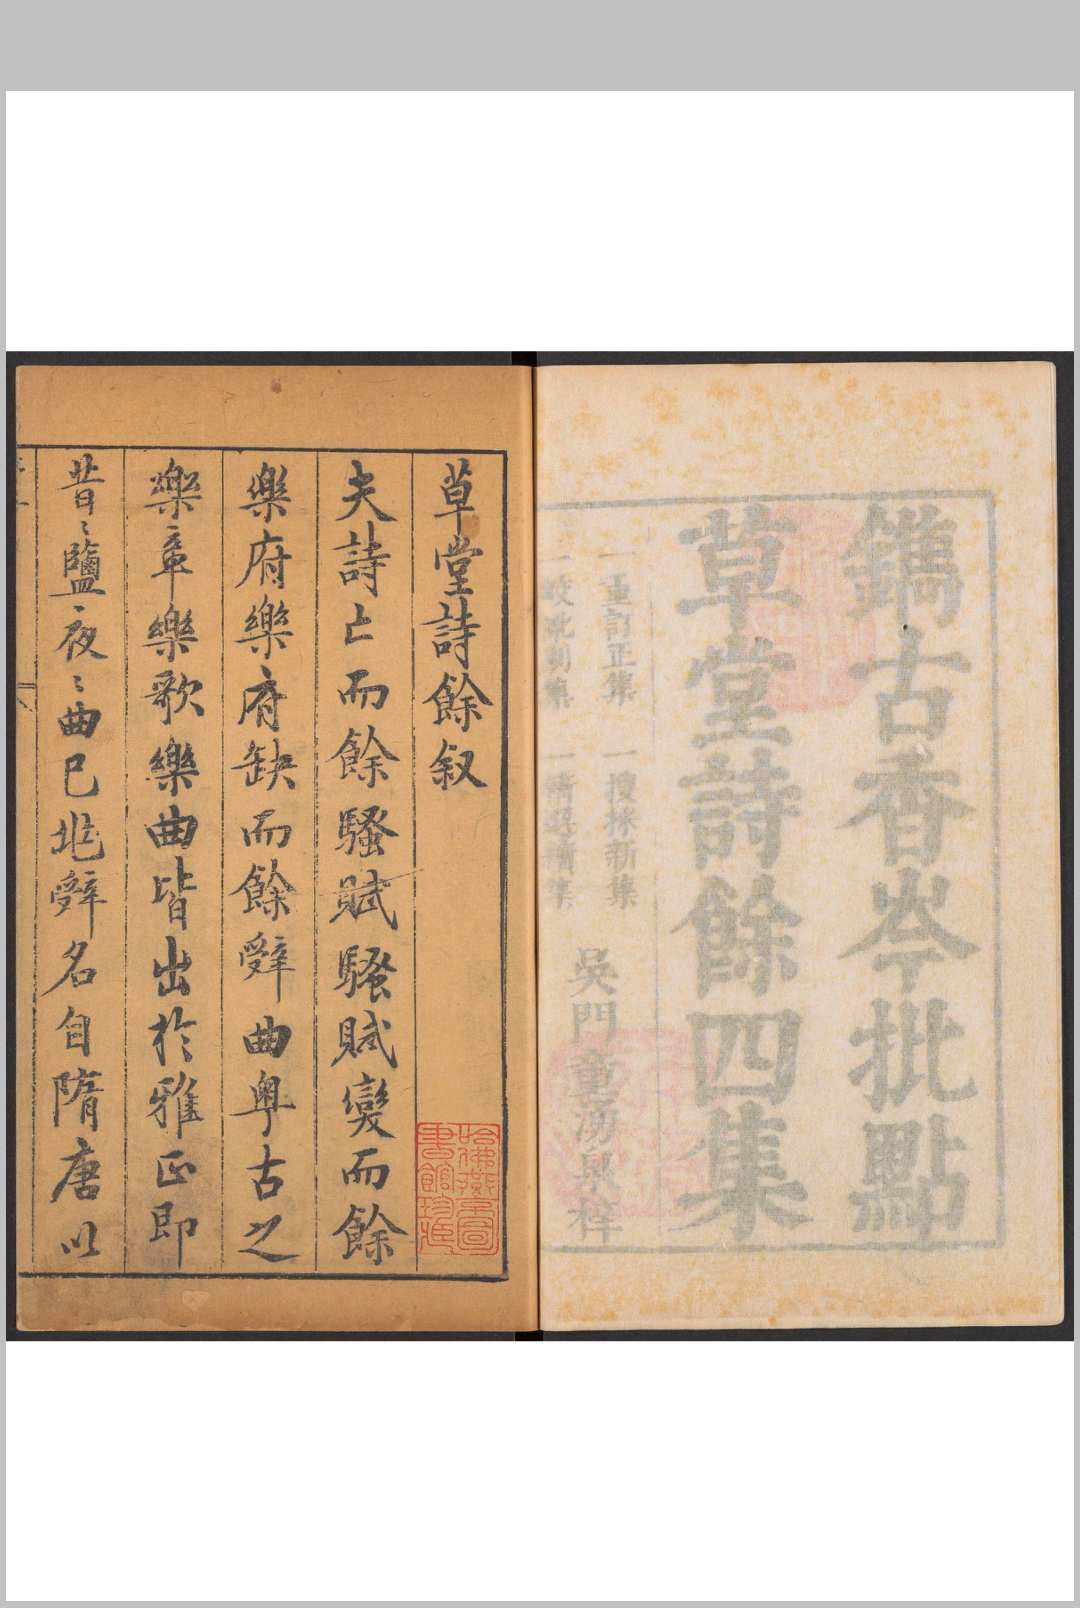 鐫古香岑批點
草堂詩餘四集
一重訂正集 一搜採新集
集 一精選續集
吳門童湧泉梓
草堂詩餘叙
夫詩亡而餘騷賦騷賦變而餘
樂府樂府缺而餘辭曲粤古之
樂章樂歌樂曲皆出於雅正即
昔〻鹽夜〻曲已兆辭名自隋唐以
哈佛燕京圖
書館珍藏